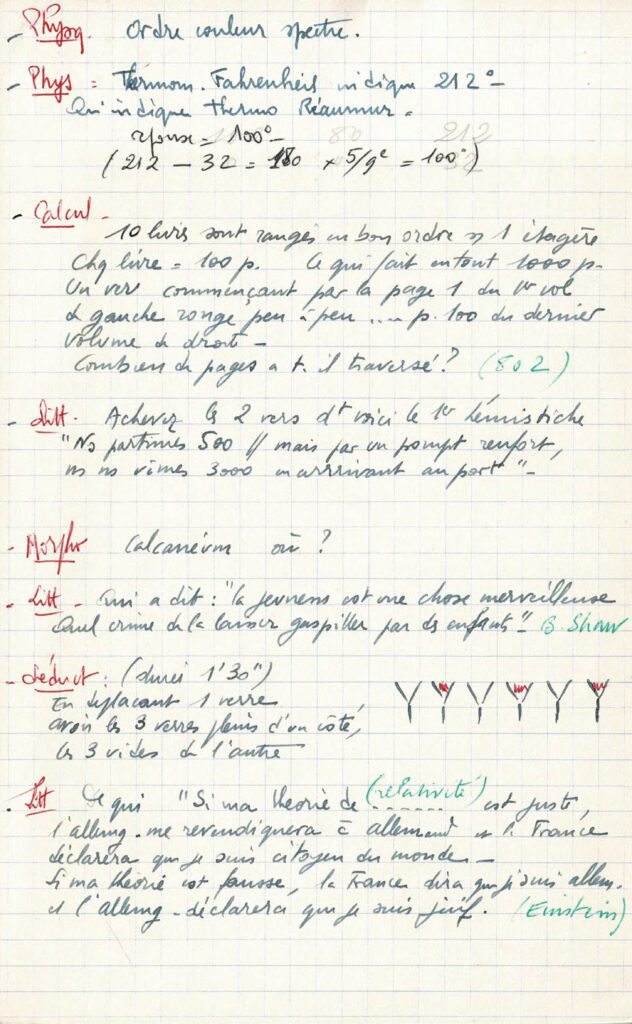 - Physq. Ordre couleur spectre.
- Phys = Thermom. Fahrenheit indique 212° -
Qu'indique Thermo Réaumur.
réponse = 100° - 80 212
(212 - 32 = 180 × 5/9e = 100°) 32
- Calcul -
10 livres sont rangés en bon ordre sr 1 étagère
Chq livre = 100 p. Ce qui fait en tout 1000 p.
Un ver commençant par la page 1 du 1er vol
de gauche ronge peu à peu .... p. 100 du dernier
volume de droite -
Combien de pages a t. il traversé ? (802)
- Litt. Achevez les 2 vers dt voici le 1er hémistiche
"Ns partîmes 500 // mais par un prompt renfort,
ns ns vîmes 3000 en arrrivant au port" -
- Morpho Calcanéum où ?
- Litt - Qui a dit : "la jeunesse est une chose merveilleuse
Quel crime de la laisser gaspiller par des enfants" - B. Shaw
- Déduct : (durée 1'30")
En déplaçant 1 verre
avoir les 3 verres pleins d'un côté,
les 3 vides de l'autre
. Litt De qui "Si ma théorie de (relativité) ------ est juste,
l'allemg. me revendiquera à allemand et la France
déclarera que je suis citoyen du monde -
Si ma théorie est fausse, la France dira que j'suis allem.
et l'allemg - déclarera que je suis juif. (Einstein)